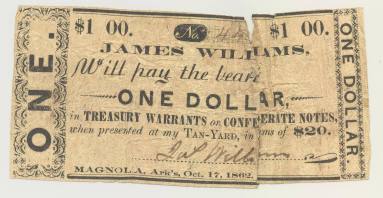 $1 00. No. $1 00.
JAMES WILLIAMS,
Will pay the beare
ONE DOLLAR,
in TREASURY WARRANTS or CONFEDERATE NOTES,
when presented at my TAN-YARD, in sums of $20.
MAGNOLA, Ark's, Oct. 17, 1862.
ONE.
ONE DOLLAR